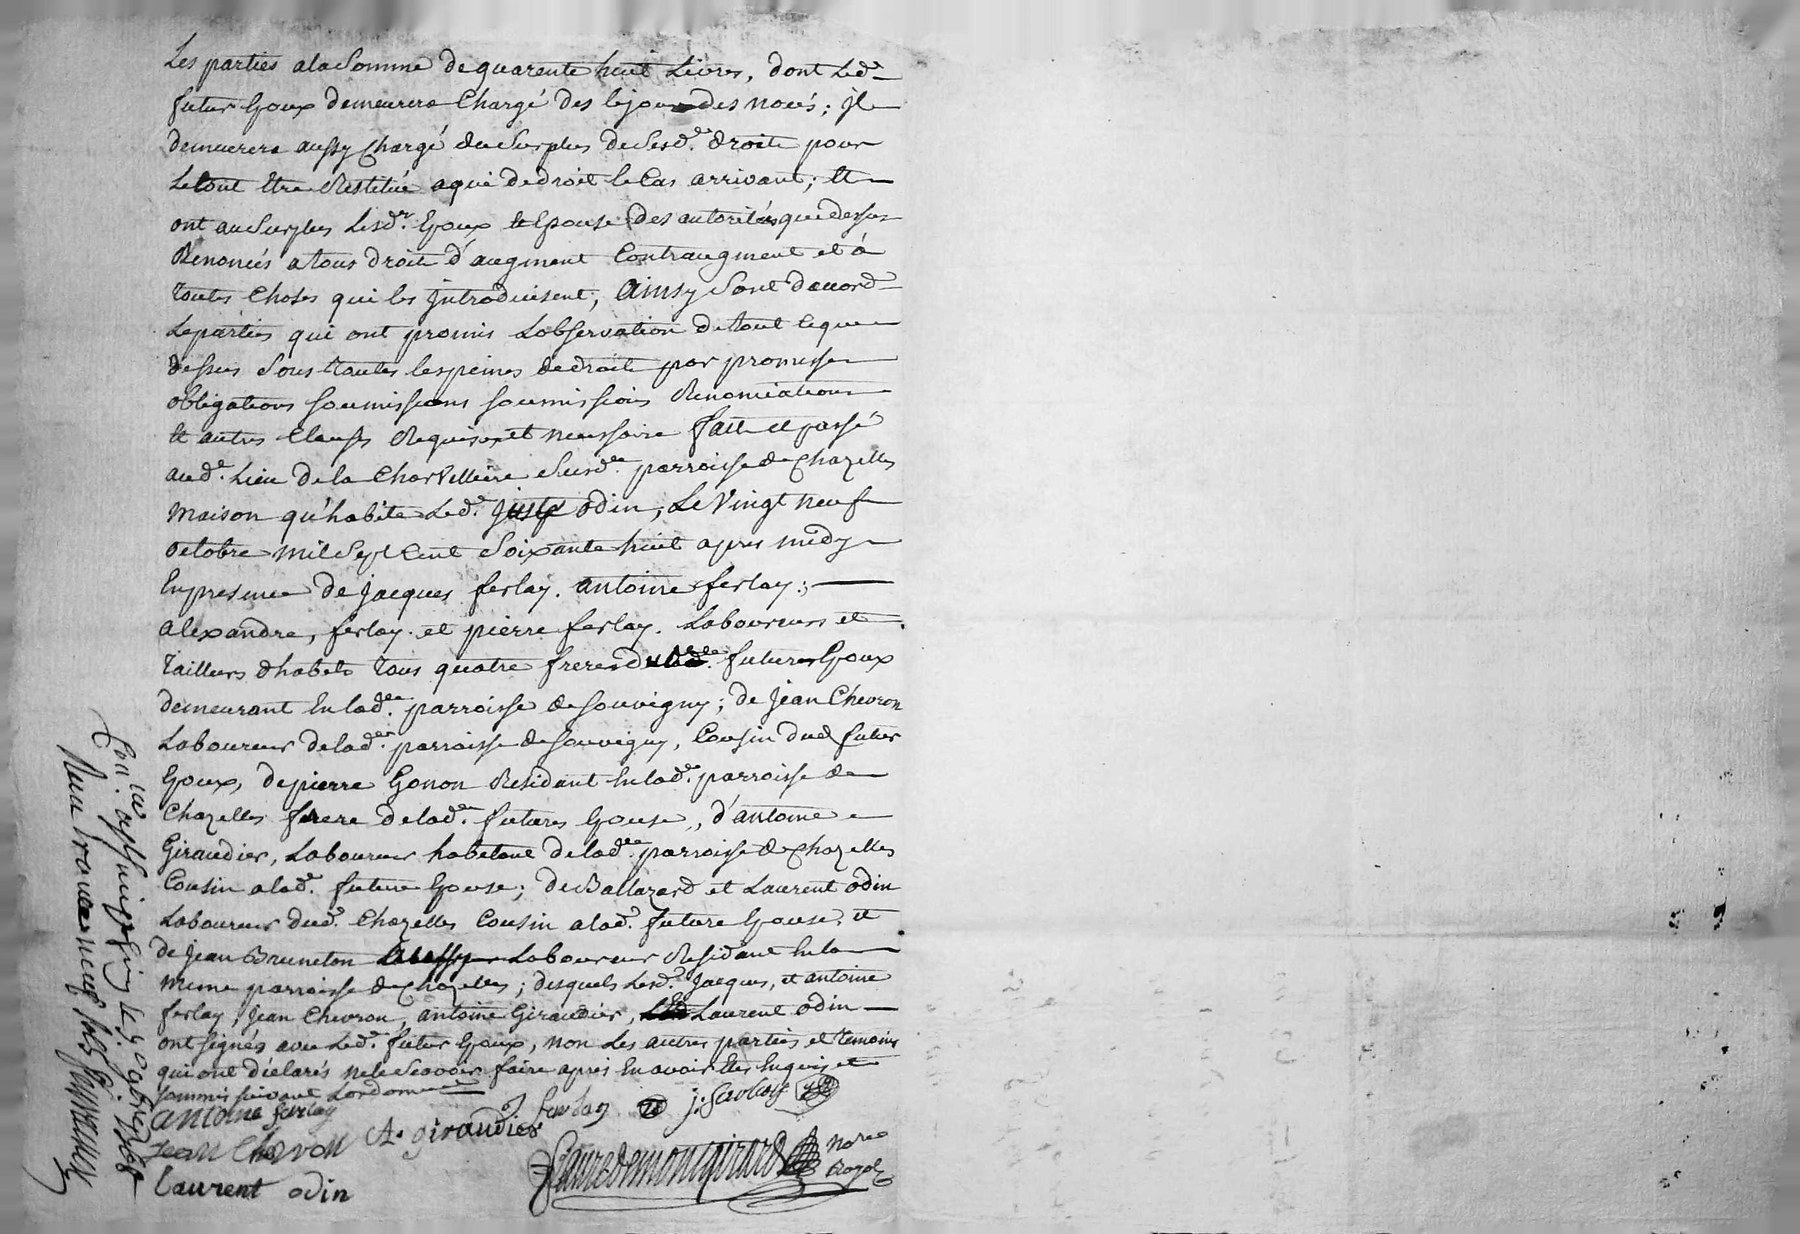 Les parties ala Somme de quarente huit Livres, dont Led.
futur Epoux demeurera Chargé des le jour des noces; il
demeurera aussy Chargé du Surplus de Sesd. droits pour
Letout Etre Restitué aqui dedroit le Cas arrivant; Et
ont au Surplus Lesd.rs Epoux et Epouse des autorités que dessus
Renoncés atous droits d'augment Contraugment et à
toutes Choses qui les introduisent, Ainsy Sont daccord
Lesparties qui ont promis Lobservation detout ceque
dessus Sous toutes lespeines dedroits par promesse
obligations soumissions soumissions Renonciations
et autres Clauses Requises et necessaire fait et passé
aud. Lieu de la Charvelliere Susd. parroisse de Chazelles
maison qu'habite Led. odin, Le Vingt neuf
octobre mil Sept Cent Soixante huit apres midy
Enpresence de jacques ferlay. antoine ferlay;
alexandre, ferlay. et pierre ferlay. Laboureurs et
tailleurs dhabits tous quatre freres futur Epoux
demeurant En lad. parroisse de Souvigny; de jean Chevron
Laboureur delad. parroisse de souvigny, Cousin dud futur
Epoux, de pierre Gonon Residant En lad. parroisse de
Chazelles frere delad. future Epouse, d'antoine
Giraudier, Laboureur habitant delad. parroisse de Chazelles
Cousin alad. future Epouse; de Baltazard et Laurent odin
Laboureurs dud. Chazelles Cousin alad. future Epouse, et
de jean Bruneton Laboureur Residant En la
meme parroisse de Chazelles; desquels Lesd. jacques, et antoine
ferlay, jean Chevron, antoine Giraudier, Laurent odin
ont signés avec Led. futur Epoux, non Les autres parties et temoins
qui ont déclarés ne le Scavoir faire apres En avoir Etes Enquis et
sommes suivant Lordonnance
antoine ferlay
J ferlay
j: ferlay
jean Chevron
A. giraudier
Laurent odin
Faure de montgirard
no.re Royal